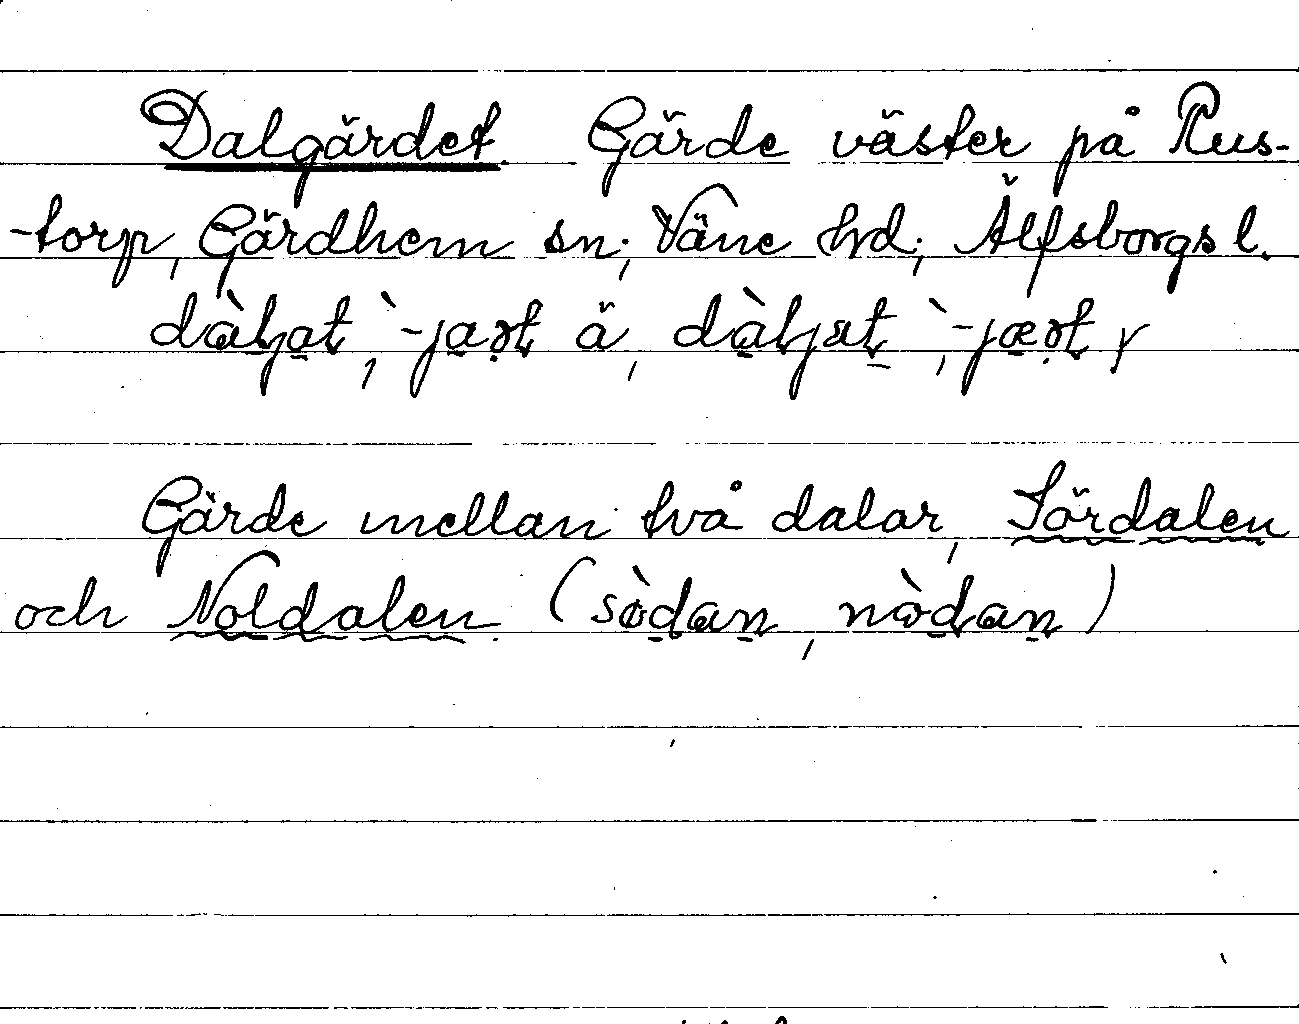 Dalgärdet. Gärde väster på Rus-
-torp, Gärdhem sn; Väne hd; Älfsborgs l.
dàljat, `-jaṛt ä, dàljat, `-jæṛt y
Gärde mellan två dalar, Sördalen
och Noldalen. (sòdan, nòdan)